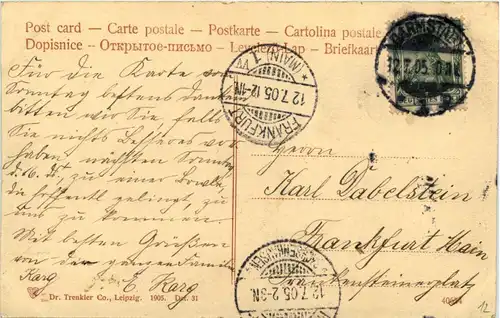 Post card — Carte postale — Postkarte — Cartolina postale
Dopisnice — Открытое-письмо — Levelezö-Lap — Briefkaart
Für die Karte vom
Sonntag bestens dankend
bitten wir Sie, falls
Sie nichts Besseres vor-
haben nächsten Sonntag
d. 16. ds. zu einer Bowle,
die hoffentl. gelingt, zu
uns zu kommen.
Mit besten Grüßen
von der ganzen Familie
Karg E. Karg
FRANKFURT (MAIN) 1
12.7.05.12-1N.
DARMSTADT
12.7.05
Herrn
Karl Dabelstein
Frankfurt Main
12.7.05.2-3N.
Dr. Trenkler Co., Leipzig. 1905. Dst. 31
12